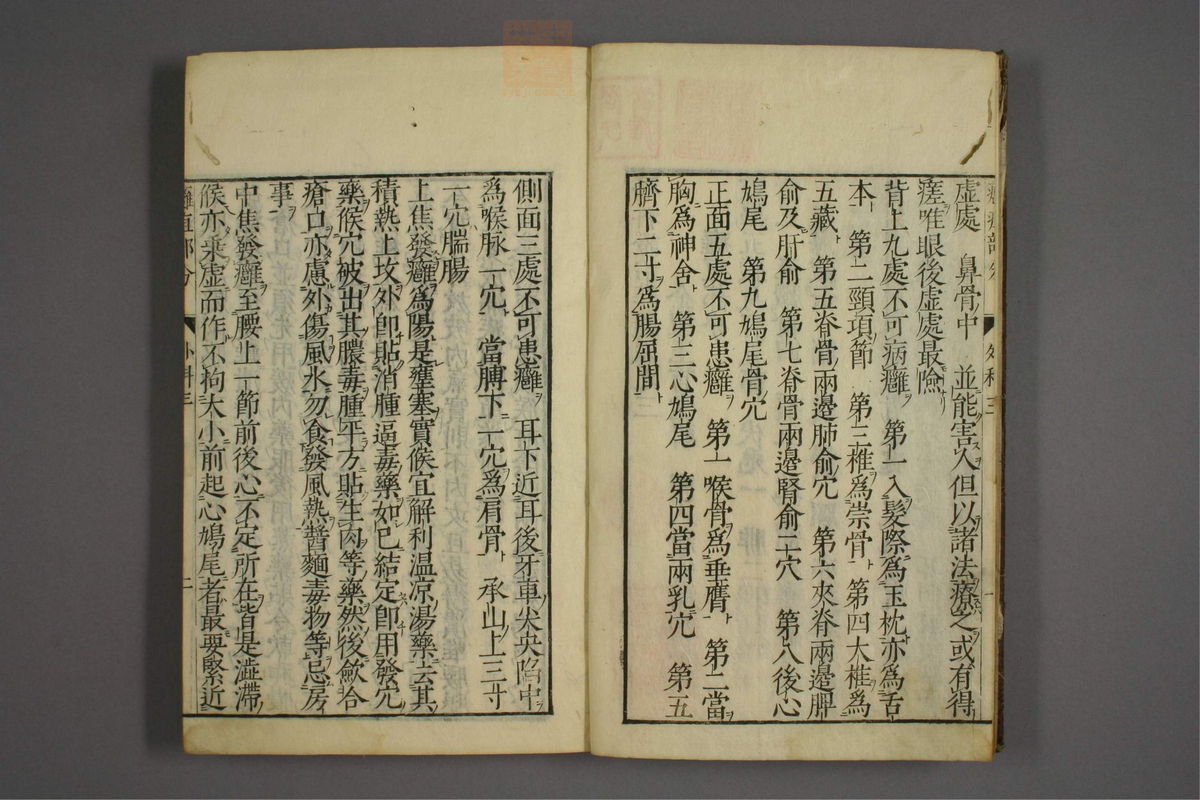 虛處　鼻骨中　並能害人但以諸法療之或有得
瘥唯眼後虛處最險
背上九處不可病癰　第一入髮際爲玉枕亦爲舌
本　第二頸項節　第三椎爲崇骨　第四大椎爲
五藏　第五脊骨兩邊肺俞穴　第六夾脊兩邊脾
俞及肝俞　第七脊骨兩邊腎俞二穴　第八後心
鳩尾　第九鳩尾骨穴
正面五處不可患癰　第一喉骨爲垂膺　第二當
胸爲神舍　第三心鳩尾　第四當兩乳穴　第五
臍下二寸爲腸屈間
側面三處不可患癰　耳下近耳後牙車尖央陷中
爲喉脉一穴　當膊下一穴爲肩骨　承山上三寸
一穴腨腸
上焦發癰爲陽是壅塞實候宜解利溫凉湯藥去其
積熱上攻外卽貼消腫逼毒藥如已結定卽用發穴
藥候穴破出其膿毒腫平方貼生肉等藥然後斂合
瘡口亦慮外傷風水勿食發風熱醬麵毒物等忌房
事
中焦發癰至腰上一節前後心不定所在皆是澁滯
候亦乘虛而作不拘大小前起心鳩尾者最要緊近
外科三
二